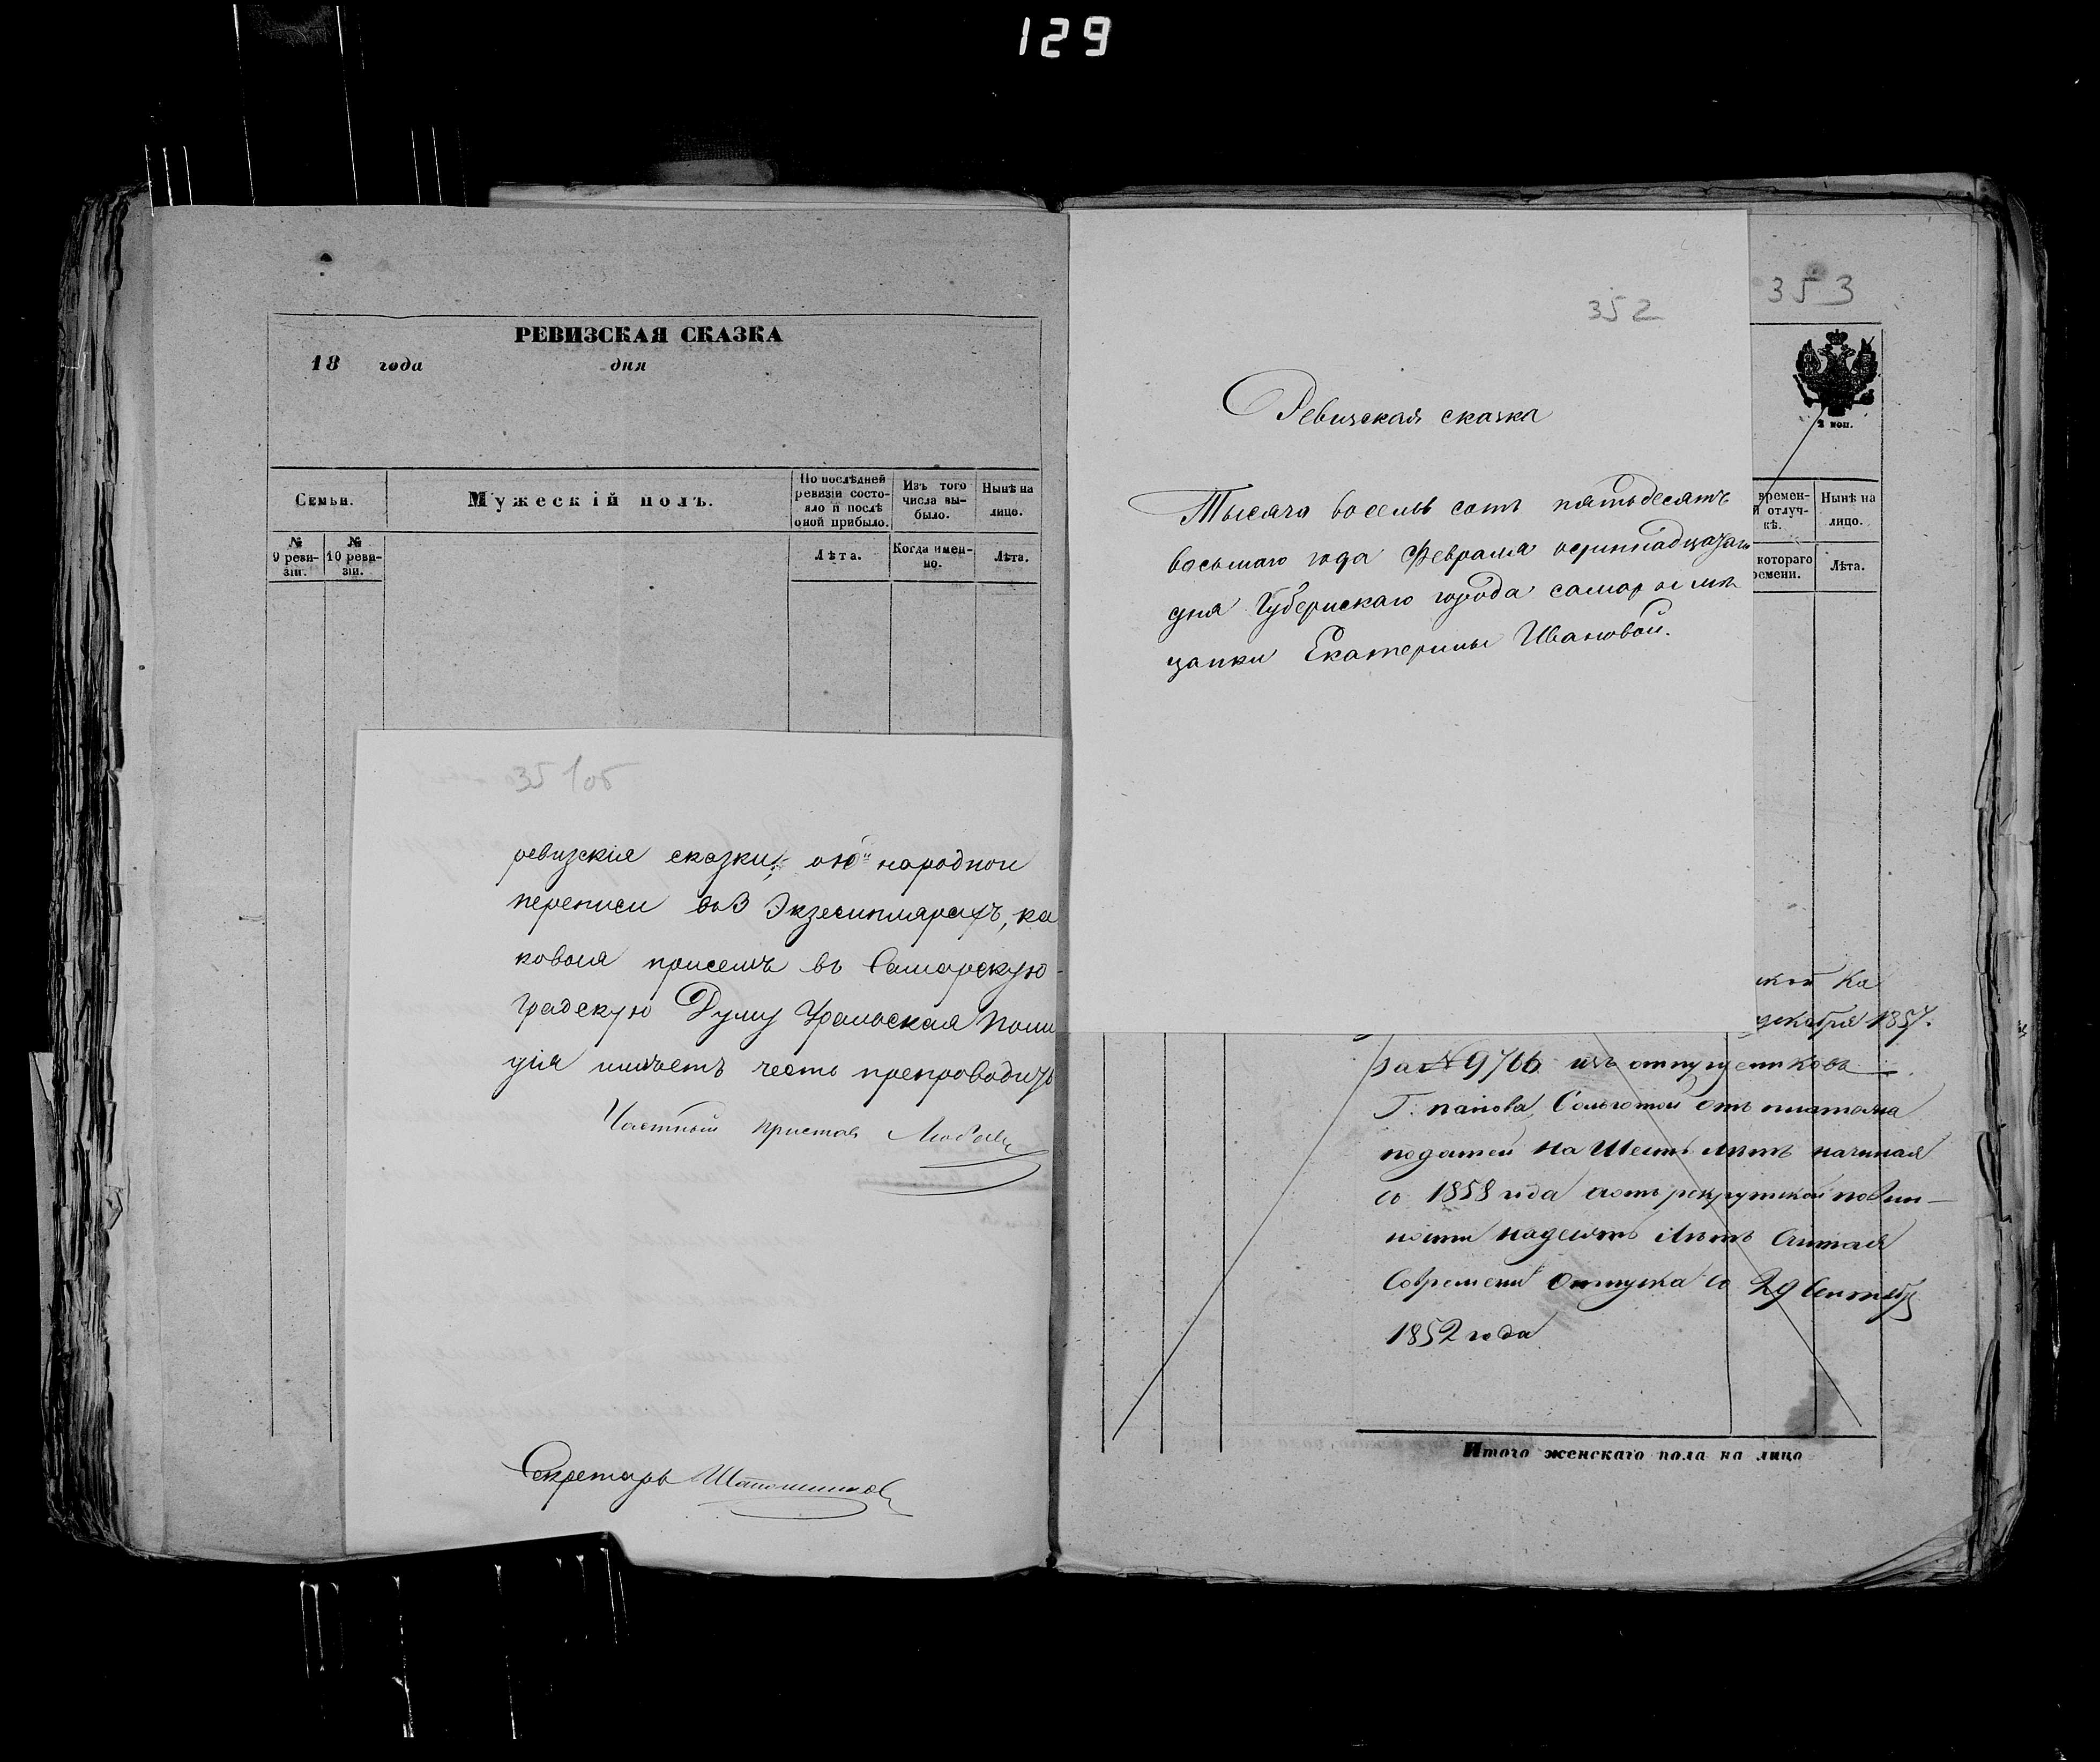 129
РЕВИЗСКАЯ СКАЗКА
18 года дня
Семьи.
Мужескій полъ.
По послѣдней ревизіи состо-
яло и послѣ
оной прибыло.
Изъ того
числа вы-
было.
Нынѣ на
лицо.
№
9 реви-
зіи.
№
10 реви-
зіи.
Лѣта.
Когда имен-
но.
Лѣта.
351об
ревизскія сказки, о народной
переписи въ 3 Экземплярахъ, ка
ковыя присемъ въ Самарскую
градскую Думу Уральская Поли
ція имѣетъ честь препроводить
Частный приставъ
Секретарь
352
Ревизская сказка
Тысяча восемь сотъ пятьдесятъ
восьмаго года Февраля одиннадцатаго
дня Губернскаго города самары мѣ
щанки Екатерины Ивановой.
353
2 коп.
времен-
й отлуч-
кѣ.
Нынѣ на
лицо.
котораго
ремени.
Лѣта.
ской Ка
декабря 1857.
за № 9766 изъ отпущенниковъ
Г. Сольготой отъ платежа
податей на Шесть лѣтъ начиная
со 1858 года аотъ рекрутской повин-
ности надесять лѣтъ Считая
Современи отпуска со 29 Сентября
1852 года
Итого женскаго пола на лицо